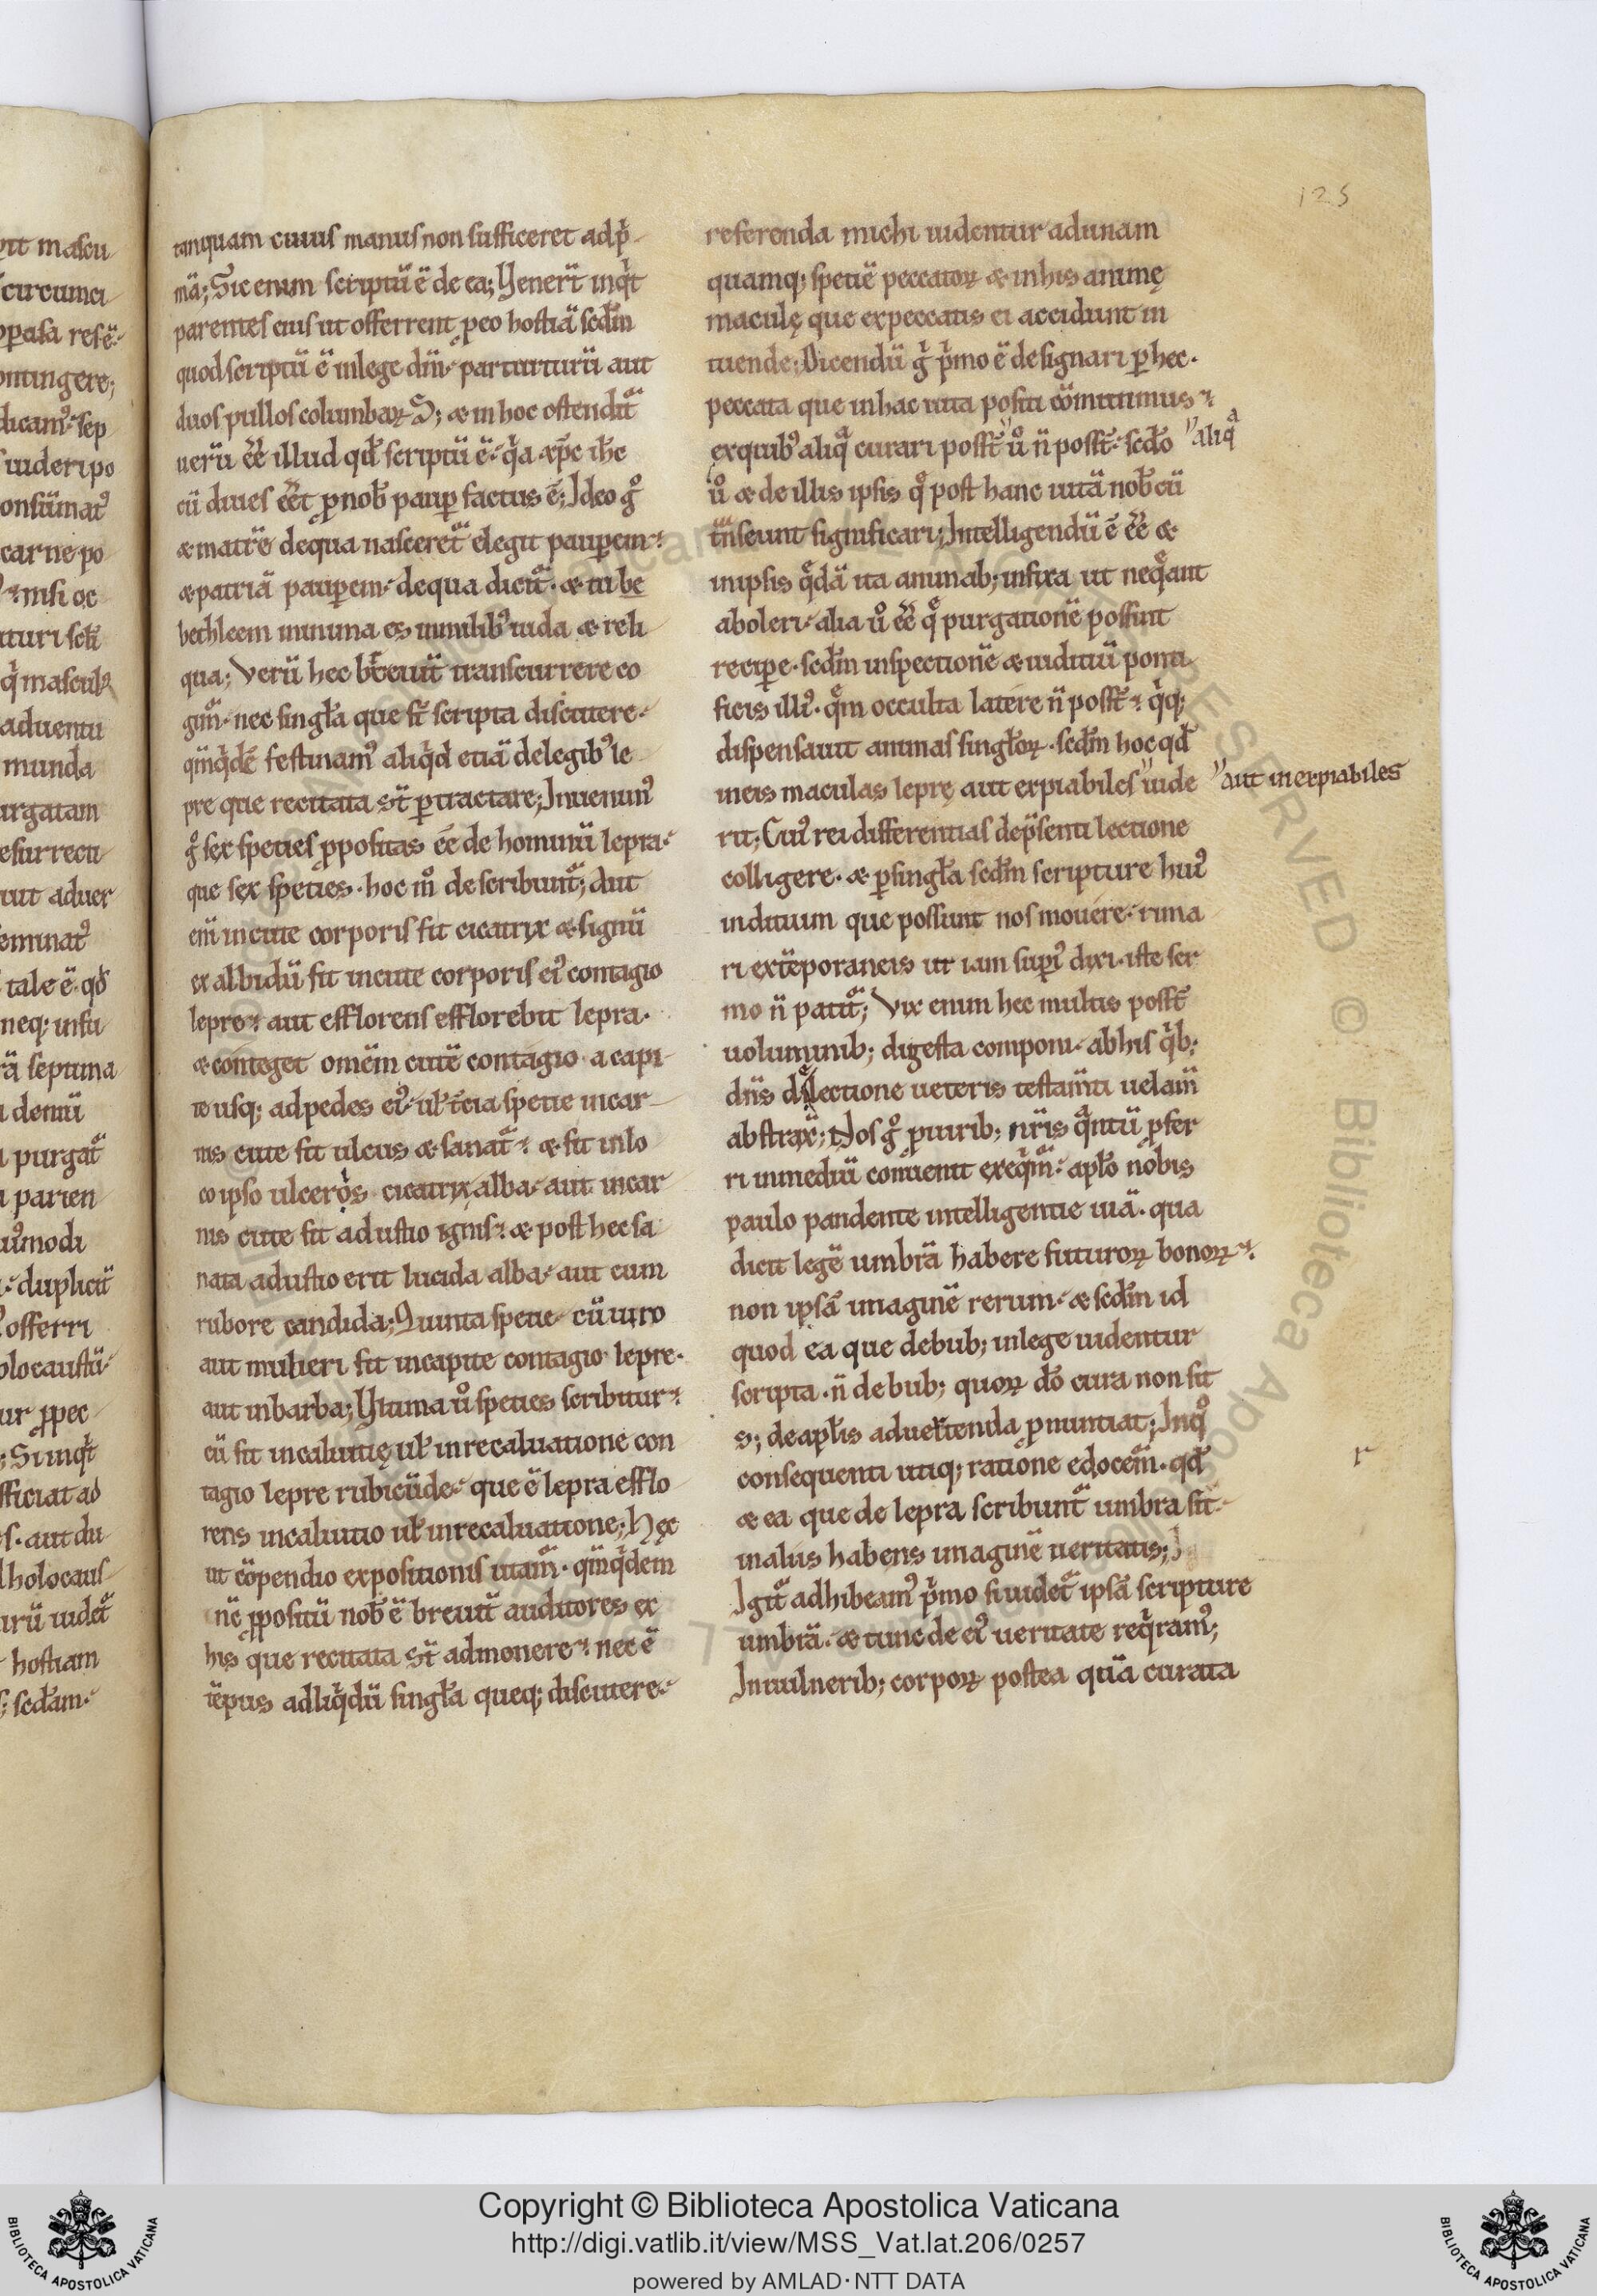 125
tanquam cuius manus non sufficeret ad p̓
mā; Sic enim scriptū ē de ea; Venert̄ inqͥt
parentes eius ut offerrent peo hostiā scd̄m
quod scriptū ē inlege dn̄i par turturū aut
duos pullos columbaꝝ; & in hoc ostendit᷑
uerū ēē illud qd̄ scriptū ē qͥa xp̄c ih̄c
cū diues eēt ꝓnob̄ paup̲ factus ē; Ideo gͦ
& matrē dequa nasceret᷑ elegit paup̲em
& patriā paup̲em dequa dicit᷑ & tu be
bethleem minima es inmilibꝰ iuda & reli
qua; Verū hec breuit̄ transcurrere eo
gim᷑ nec singl̄a que st̄ scripta discutere
qm̄qͥdē festinamꝰ aliqͥd etiā delegibꝰ le
pre que recitata st̄ p̲tractare; Inuenimꝰ
gͦ sex speties ꝓpositas ēē de hominū lepra
que sex speties hoc mͦ describunt᷑; Aut
em̄ incute corporis fit cicatrix & signū
ex albidū fit incute corporis eiꝰ contagio
lepre aut efflorens efflorebit lepra
& conteget omēm cutē contagio a capi
te usq; ad pedes eiꝰ ul̄ t̄cia spetie incar
nis cute fit ulcus & sanat᷑ & fit inlo
co ipso ulceris cicatrix alba aut incar
nis cute fit adustio ignis & post hec sa
nata adustio erit lucida alba aut cum
rubore candida; Quinta spetie cū uiro
aut mulieri fit incapite contagio lepre
aut inbarba; Vltima uͦ speties scribitur
cū fit incaluitię ul̄ inrecaluatione con
tagio lepre rubicūde que ē lepra efflo
rens incaluitio ul̄ inrecaluatione; Hęc
ut cōpendio expositionis utam᷑ qm̄qͥdem
nē ꝓpositū nob̄ ē breuit̄ auditores ex
his que recitata st̄ admonere nec ē
tēpus adliqͥdū singl̄a queq; discutere
referenda michi uidentur ad unam
quamq; spetiē peccatoꝝ & in his animę
maculę que expeccatis ei accidunt in
tuende; Dicendū gͦ pͥmo ē designari p̲ hec
peccata que inhac uita positi cōmittimus
exquibꝰ aliqͣ curari posst̄ uͦ n̄ posst̄ scd̄o
aliqͣ
uͦ & de illis ipsis qͦ post hanc uitā nob̄cū
tn̄seunt significari; Intelligendū ē ēē &
inipsis qͤdā ita animab; infixa ut neqͤant
aboleri alia uͦ ēē qͤ purgationē possint
recipe scd̄m inspectionē & iuditiū ponti
ficis illiꝰ qͤm occulta latere n̄ posst̄ qͥq;
dispensauit animas singl̄oꝝ scd̄m hoc qd̄
ineis maculas leprę aut expiabiles uide
aut inexpiabiles
rit; Cuiꝰ rei differentias dep̄senti lectione
colligere & p̲ singl̄a scd̄m scripture huiꝰ
indituum que possunt nos mouere rima
ri extēporaneis ut iam supiꝰ dixi iste ser
mo n̄ patit᷑; Vix enim hec multis posst̄
uoluminib; digesta componi ab his qͥb;
dn̄s de lectione ueteris testam̄ti uelam̄
abstrax̄; Nos gͦ ꝓuirib; nr̄is qͣntū ꝓfer
ri inmediū conuenit exeqͥm᷑ apl̄o nobis
paulo pandente intelligentie uiā qua
dicit legē umbrā habere futuroꝝ bonoꝝ
non ipsā imaginē rerum & scd̄m id
quod ea que debub; inlege uidentur
scripta n̄ de bub; quoꝝ dō cura non fit
s; de apl̄is aduertenda ꝓnuntiat; Inqͦ
consequenti utiq; ratione edocem᷑ qd̄
r
& ea que de lepra scribunt᷑ umbra sit
inaliis habens imaginē ueritatis;
Igit᷑ adhibeamꝰ pͥmo si uidet᷑ ipsā scripture
umbrā & tunc de eiꝰ ueritate reqͥramꝰ;
Inuulnerib; corporꝝ postea quā curata
Copyright © Biblioteca Apostolica Vaticana
http://digi.vatlib.it/view/MSS_Vat.lat.206/0257
powered by AMLAD·NTT DATA
BIBLIOTECA APOSTOLICA VATICANA
BIBLIOTECA APOSTOLICA VATICANA